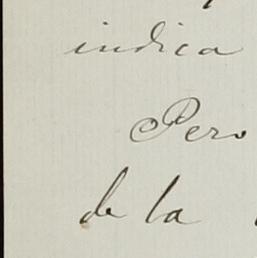 indica
Pero
de la